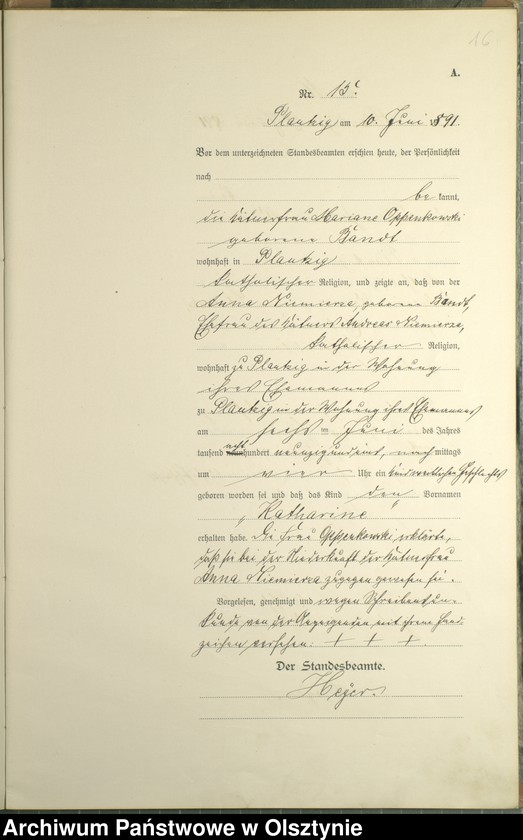 16
A.
Nr. 13
Plautzig am 10. Juni 1891.
Vor dem unterzeichneten Standesbeamten erschien heute, der Persönlichkeit
nach
be kannt,
die Kätnerfrau Mariane Oppenkowski
geborene Bandt
wohnhaft in Plautzig
katholischer Religion, und zeigte an, daß von der
Anna Niemierza, geborene Bandt,
Ehefrau des Kätners Andreas Niemierza,
katholischer Religion,
wohnhaft zu Plautzig in der Wohnung
ihres Ehemannes
zu Plautzig in der Wohnung ihres Ehemannes
am sechsten Juni des Jahres
tausend acht hundert neunzig und eins, nach mittags
um vier Uhr ein Kind weiblichen Geschlechts
geboren worden sei und daß das Kind den Vornamen
„Katharine"
erhalten habe. Die Frau Oppenkowski erklärte,
daß sie bei der Niederkunft der Kätnerfrau
Anna Niemierza zugegen gewesen sei.
Vorgelesen, genehmigt und wegen Schreibensun-
kunde von der Anzeigenden mit ihrem Hand-
zeichen versehen. + + +.
Der Standesbeamte.
Heyer.
Archiwum Państwowe w Olsztynie